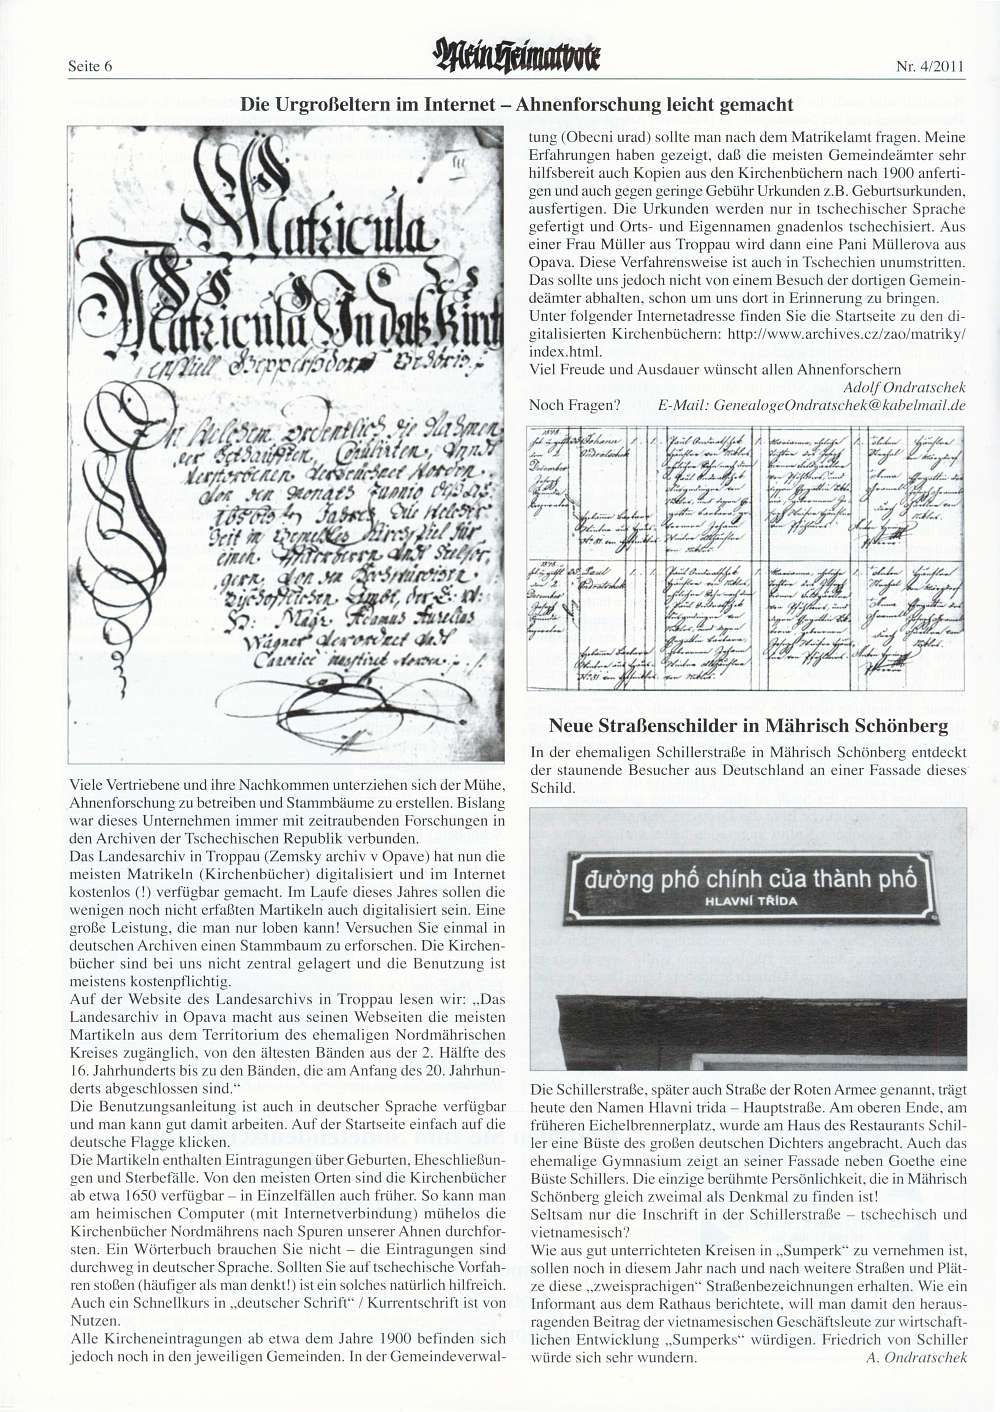 Seite 6
Mein Heimatbote
Nr. 4/2011
Die Urgroßeltern im Internet – Ahnenforschung leicht gemacht
Matricula
Matricula In daß Kirch
Viele Vertriebene und ihre Nachkommen unterziehen sich der Mühe,
Ahnenforschung zu betreiben und Stammbäume zu erstellen. Bislang
war dieses Unternehmen immer mit zeitraubenden Forschungen in
den Archiven der Tschechischen Republik verbunden.
Das Landesarchiv in Troppau (Zemsky archiv v Opave) hat nun die
meisten Matrikeln (Kirchenbücher) digitalisiert und im Internet
kostenlos (!) verfügbar gemacht. Im Laufe dieses Jahres sollen die
wenigen noch nicht erfaßten Martikeln auch digitalisiert sein. Eine
große Leistung, die man nur loben kann! Versuchen Sie einmal in
deutschen Archiven einen Stammbaum zu erforschen. Die Kirchen-
bücher sind bei uns nicht zentral gelagert und die Benutzung ist
meistens kostenpflichtig.
Auf der Website des Landesarchivs in Troppau lesen wir: „Das
Landesarchiv in Opava macht aus seinen Webseiten die meisten
Martikeln aus dem Territorium des ehemaligen Nordmährischen
Kreises zugänglich, von den ältesten Bänden aus der 2. Hälfte des
16. Jahrhunderts bis zu den Bänden, die am Anfang des 20. Jahrhun-
derts abgeschlossen sind.“
Die Benutzungsanleitung ist auch in deutscher Sprache verfügbar
und man kann gut damit arbeiten. Auf der Startseite einfach auf die
deutsche Flagge klicken.
Die Martikeln enthalten Eintragungen über Geburten, Eheschließun-
gen und Sterbefälle. Von den meisten Orten sind die Kirchenbücher
ab etwa 1650 verfügbar – in Einzelfällen auch früher. So kann man
am heimischen Computer (mit Internetverbindung) mühelos die
Kirchenbücher Nordmährens nach Spuren unserer Ahnen durchfor-
sten. Ein Wörterbuch brauchen Sie nicht – die Eintragungen sind
durchweg in deutscher Sprache. Sollten Sie auf tschechische Vorfah-
ren stoßen (häufiger als man denkt!) ist ein solches natürlich hilfreich.
Auch ein Schnellkurs in „deutscher Schrift“ / Kurrentschrift ist von
Nutzen.
Alle Kircheneintragungen ab etwa dem Jahre 1900 befinden sich
jedoch noch in den jeweiligen Gemeinden. In der Gemeindeverwal-
tung (Obecni urad) sollte man nach dem Matrikelamt fragen. Meine
Erfahrungen haben gezeigt, daß die meisten Gemeindeämter sehr
hilfsbereit auch Kopien aus den Kirchenbüchern nach 1900 anferti-
gen und auch gegen geringe Gebühr Urkunden z.B. Geburtsurkunden,
ausfertigen. Die Urkunden werden nur in tschechischer Sprache
gefertigt und Orts- und Eigennamen gnadenlos tschechisiert. Aus
einer Frau Müller aus Troppau wird dann eine Pani Müllerova aus
Opava. Diese Verfahrensweise ist auch in Tschechien unumstritten.
Das sollte uns jedoch nicht von einem Besuch der dortigen Gemein-
deämter abhalten, schon um uns dort in Erinnerung zu bringen.
Unter folgender Internetadresse finden Sie die Startseite zu den di-
gitalisierten Kirchenbüchern: http://www.archives.cz/zao/matriky/
index.html.
Viel Freude und Ausdauer wünscht allen Ahnenforschern
Adolf Ondratschek
Noch Fragen? E-Mail: GenealogeOndratschek@kabelmail.de
Neue Straßenschilder in Mährisch Schönberg
In der ehemaligen Schillerstraße in Mährisch Schönberg entdeckt
der staunende Besucher aus Deutschland an einer Fassade dieses
Schild.
đường phố chính của thành phố
HLAVNÍ TŘÍDA
Die Schillerstraße, später auch Straße der Roten Armee genannt, trägt
heute den Namen Hlavni trida – Hauptstraße. Am oberen Ende, am
früheren Eichelbrennerplatz, wurde am Haus des Restaurants Schil-
ler eine Büste des großen deutschen Dichters angebracht. Auch das
ehemalige Gymnasium zeigt an seiner Fassade neben Goethe eine
Büste Schillers. Die einzige berühmte Persönlichkeit, die in Mährisch
Schönberg gleich zweimal als Denkmal zu finden ist!
Seltsam nur die Inschrift in der Schillerstraße – tschechisch und
vietnamesisch?
Wie aus gut unterrichteten Kreisen in „Sumperk“ zu vernehmen ist,
sollen noch in diesem Jahr nach und nach weitere Straßen und Plät-
ze diese „zweisprachigen“ Straßenbezeichnungen erhalten. Wie ein
Informant aus dem Rathaus berichtete, will man damit den heraus-
ragenden Beitrag der vietnamesischen Geschäftsleute zur wirtschaft-
lichen Entwicklung „Sumperks“ würdigen. Friedrich von Schiller
würde sich sehr wundern. A. Ondratschek